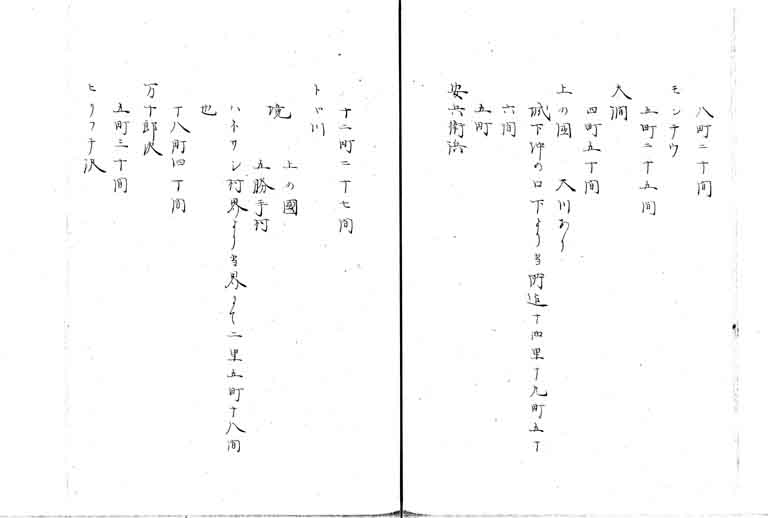 八町二十間
モンチウ
五町二十五間
大澗
四町五十間
上の國 天川あり
城下沖の口下より当所迄十四里十九町五十
六間
五町
安兵衛浜
十二町二十七間
トド川
上の國
境
五勝手村
ハネサシ村界より当界まで二里五町十八間
也
十八町四十間
万十郎沢
五町三十間
ヒリフチ沢